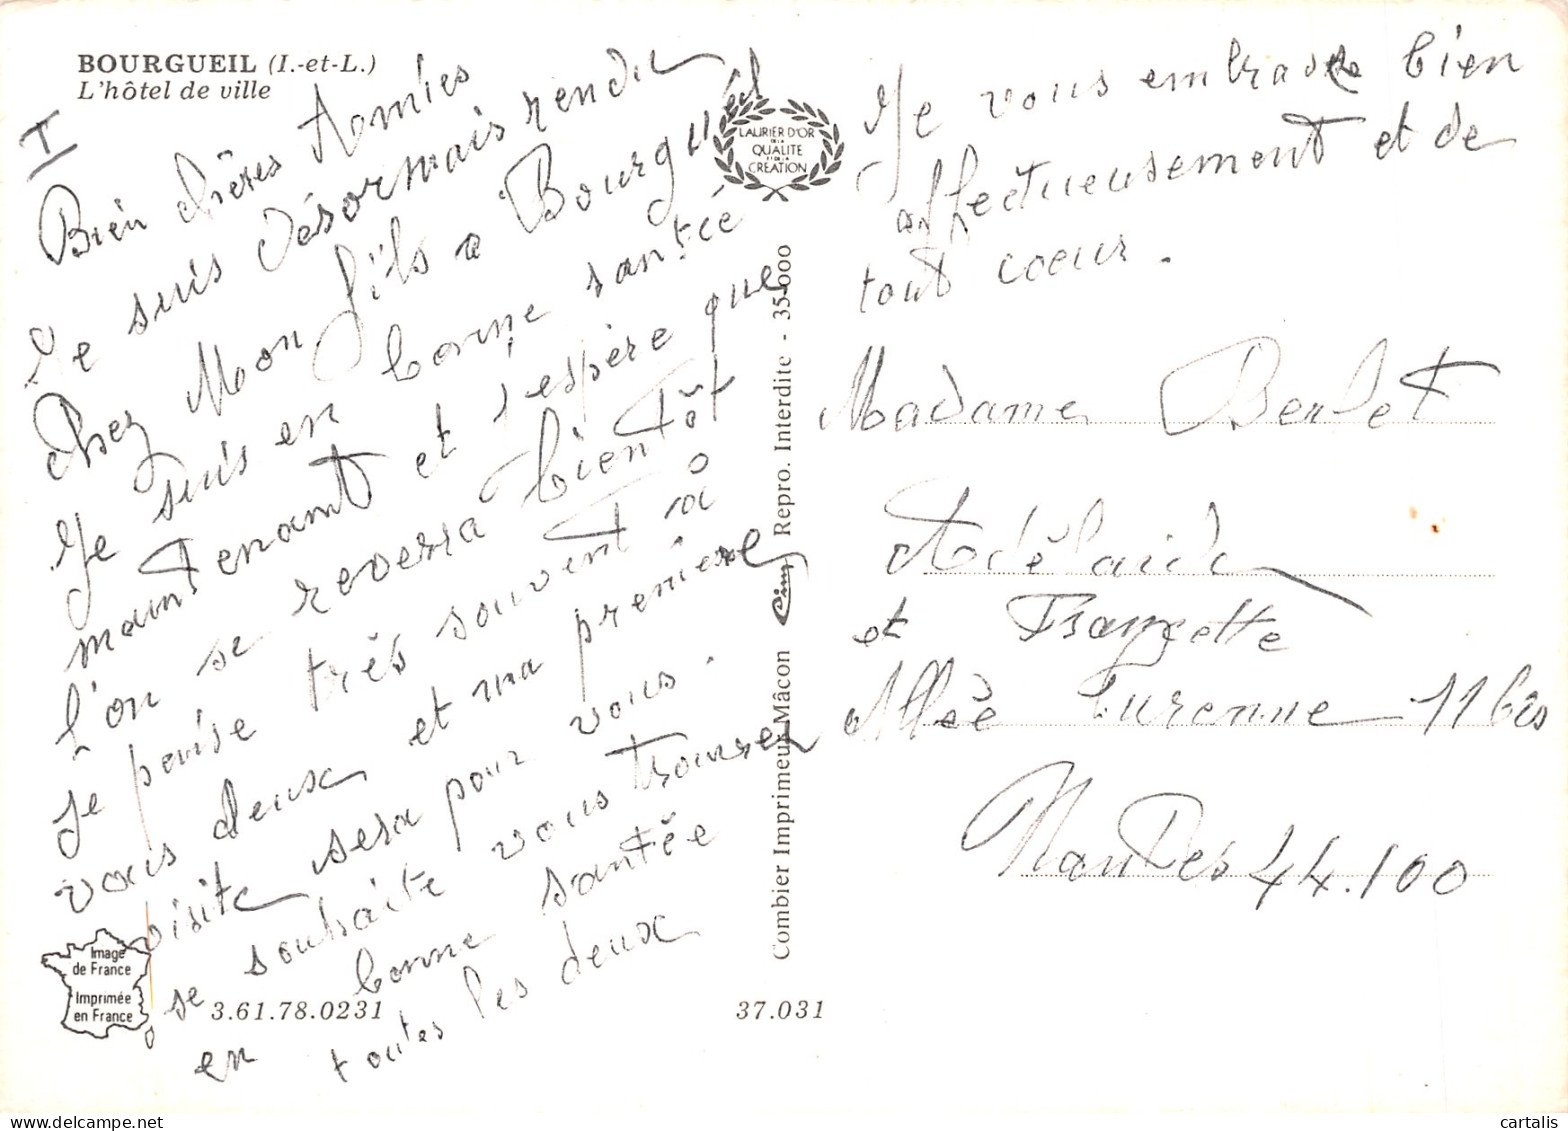 BOURGUEIL (I.-et-L.)
L'hôtel de ville
I
Bien chères Aomies
Je suis désormais rendu
chez Mon fils a Bourgueil
Je suis en bonne santée
maintenant et j'espère que
l'on se reverra bientôt
je pense très souvent à
vous deux et ma première
visite sera pour vous.
se souhaite vous trouver
en bonne santée
toutes les deux
LAURIER D'OR
DE LA
QUALITE
ET DE LA
CREATION
Je vous embrasse bien
affectueusement et de
tout coeur.
Madame Berlet
Adélaide
et Françette
Allée Turenne 11 bis
Nantes 44.100
Combier Imprimeur Mâcon Cim Repro. Interdite - 35.000
Image
de France
Imprimée
en France
3.61.78.0231
37.031
cartalis